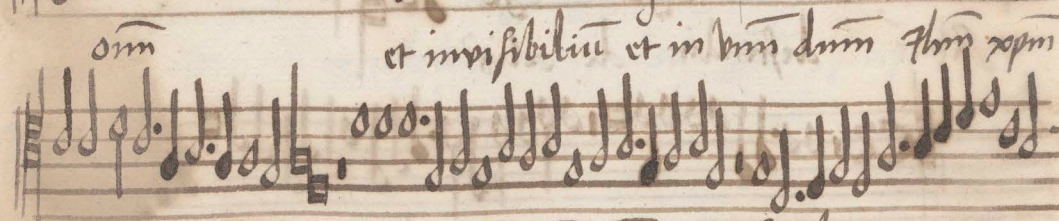 om̄ et invisibiliū et in vnū dnm̄ Jhm̄ xpm̄